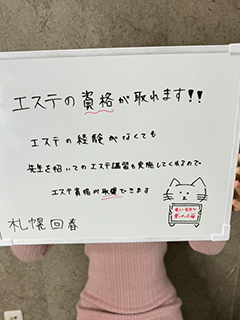 エステの資格が取れます!!
エステの経験がなくても
先生を招いてのエステ講習も実施してくれるので
エステ資格が収得できます
札幌回春